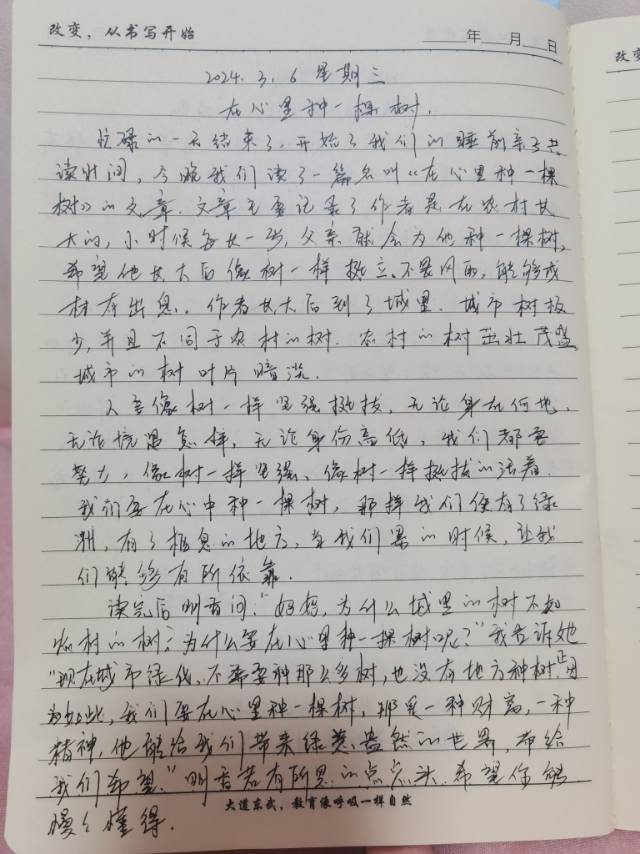 改变，从书写开始
年 月 日
改变
2024.3.6 星期三
在心里种一棵树.
忙碌的一天结束了，开始了我们的睡前亲子共
读时间，今晚我们读了一篇名叫《在心里种一棵
树》的文章.文章主要记录了作者是在农村长
大的，小时候每长一岁，父亲就会为他种一棵树，
希望他长大后像树一样挺立、不畏风雨，能够成
材有出息。作者长大后到了城里.城市树极
少，并且不同于农村的树.农村的树茁壮茂盛
城市的树叶片暗淡.
人要像树一样坚强挺拔，无论身在何地，
无论境遇怎样，无论身份高低，我们都要
努力，像树一样坚强、像树一样挺拔的活着.
我们要在心中种一棵树，那样我们便有了绿
洲，有了栖息的地方，当我们累的时候，让我
们能够有所依靠.
读完后 问："妈妈，为什么城里的树不如
农村的树？为什么要在心里种一棵树呢？"我告诉她
"现在城市绿化、不需要种那么多树，也没有地方种树，正因
为如此，我们要在心里种一棵树，那是一种财富，一种
精神，他能给我们带来绿意盎然的世界，带给
我们希望."若有所思的点点头.希望你能
慢々懂得.
大道东武，教育像呼吸一样自然